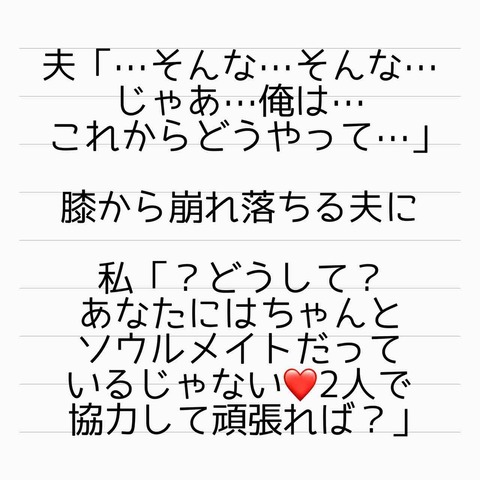 夫「…そんな…そんな…
じゃあ…俺は…
これからどうやって…」
膝から崩れ落ちる夫に
私「？どうして？
あなたにはちゃんと
ソウルメイトだって
いるじゃない❤️2人で
協力して頑張れば？」